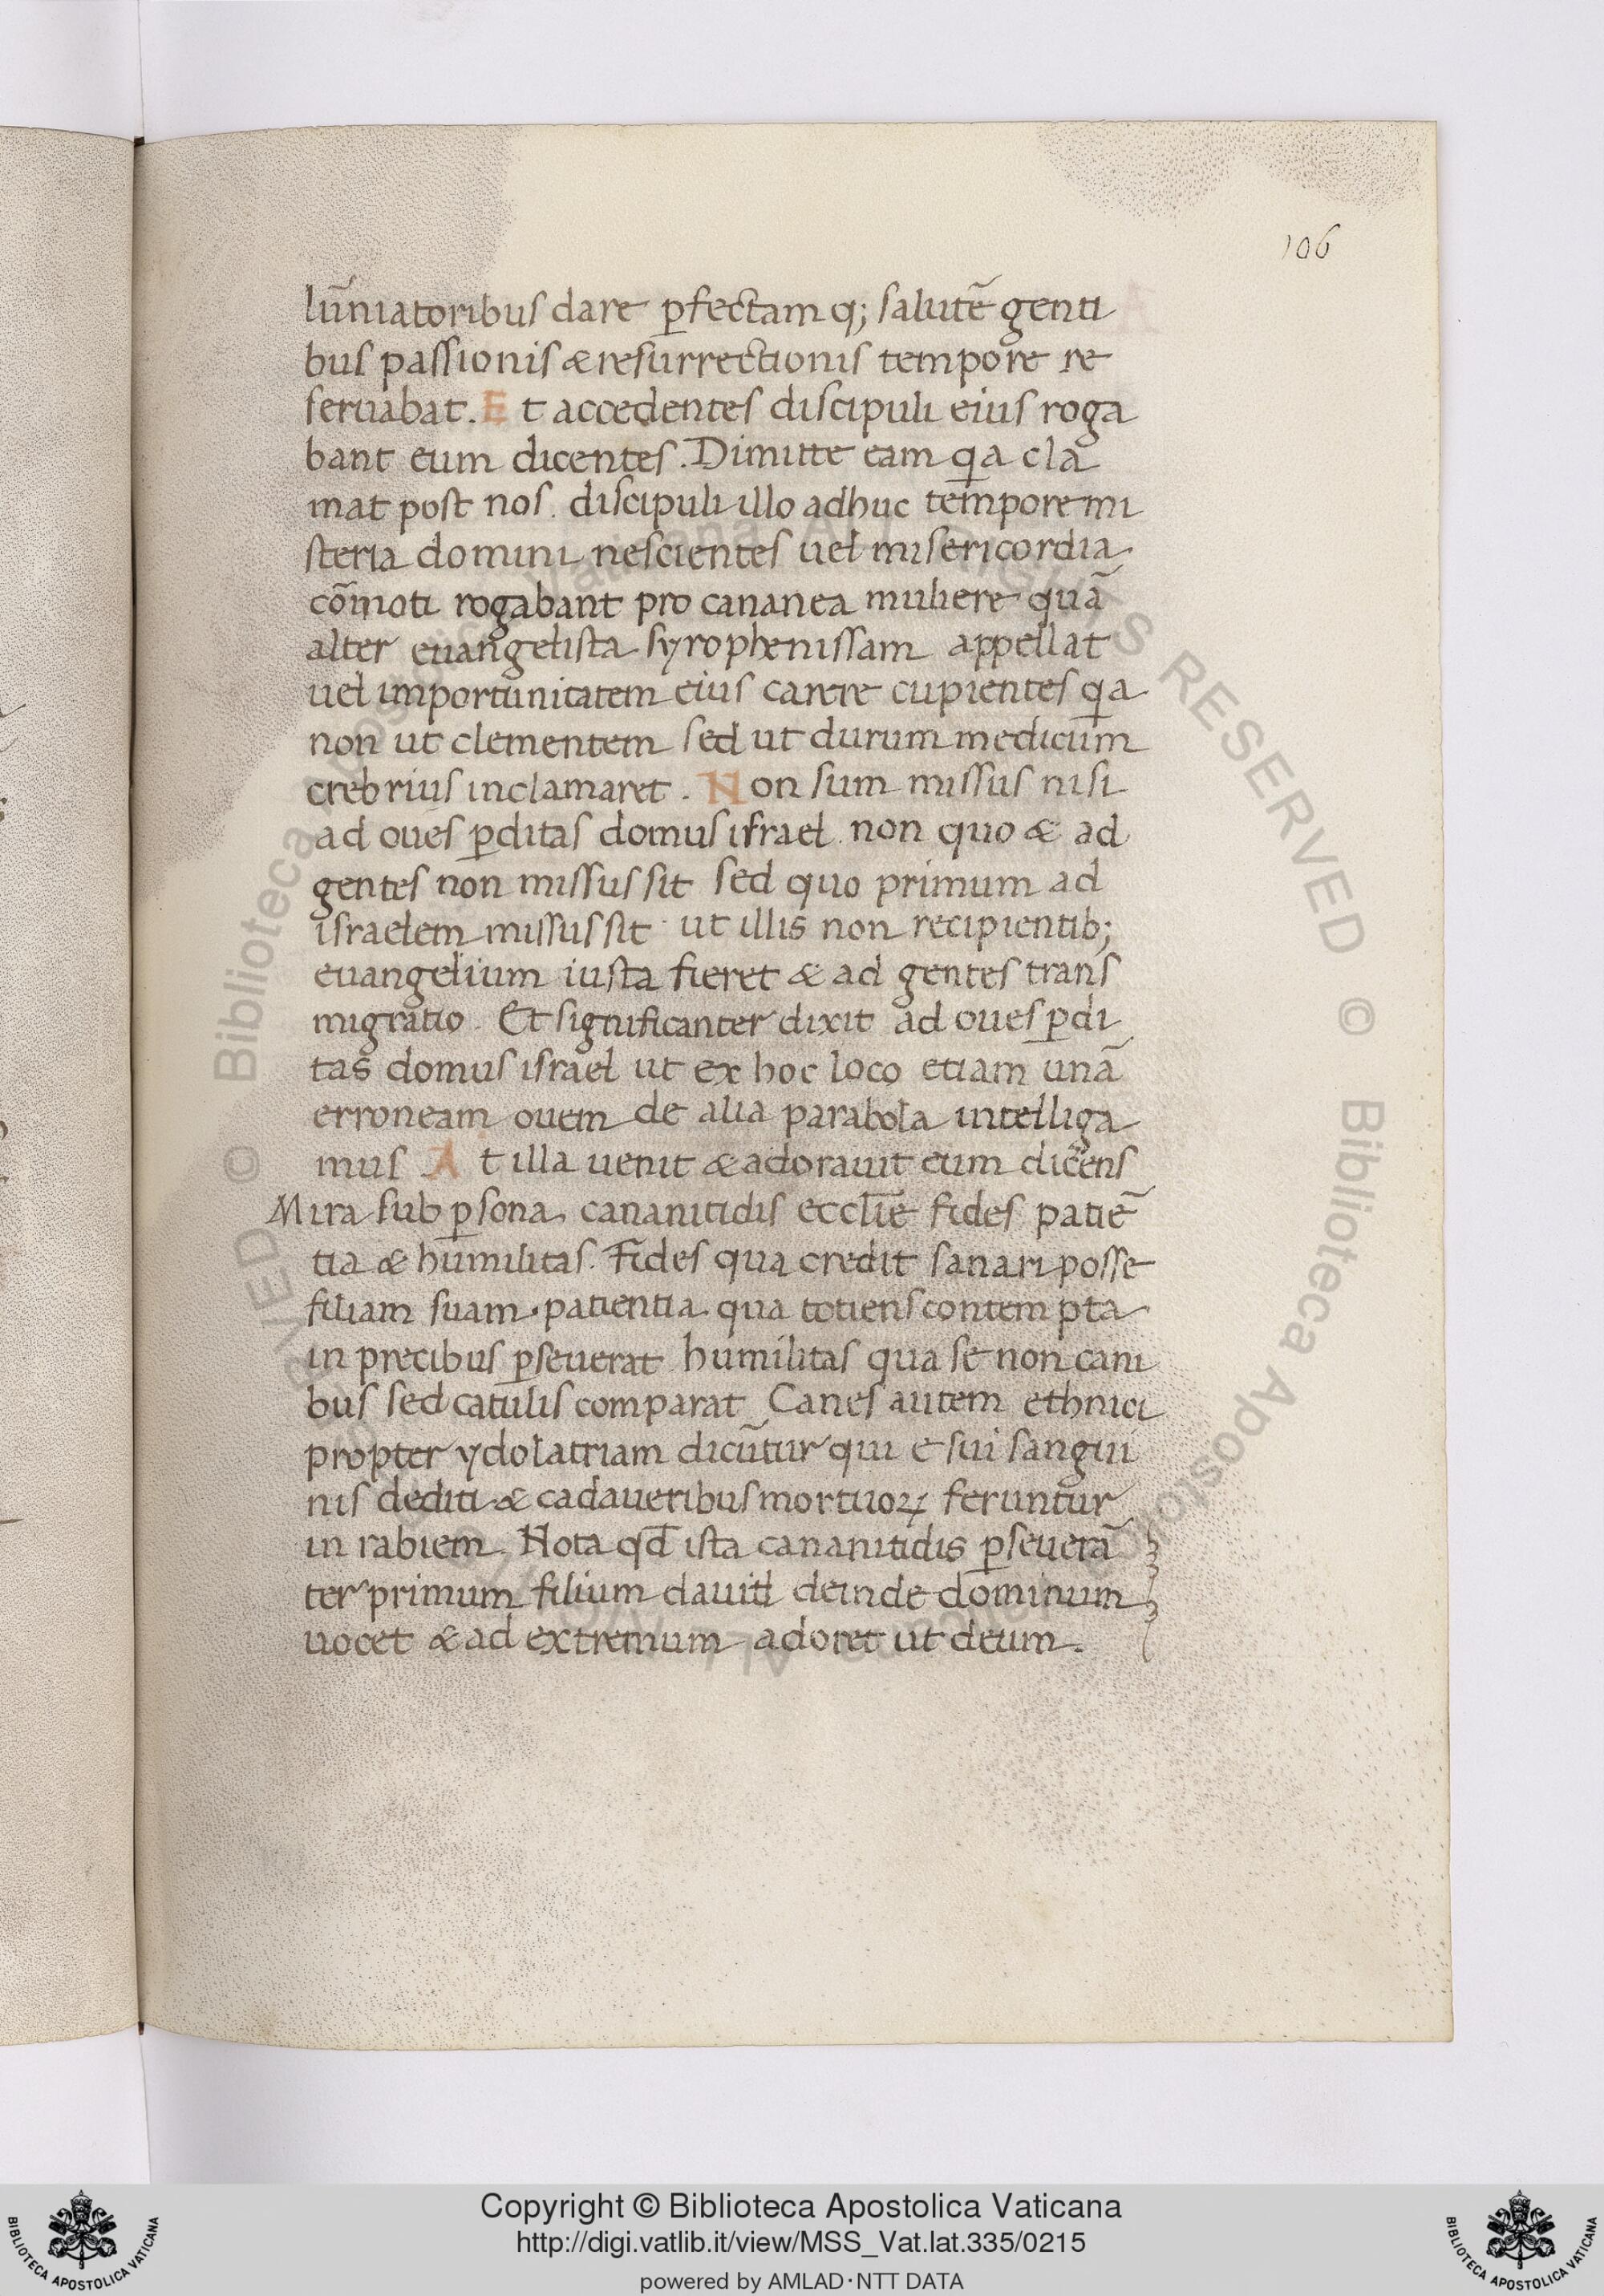 106
lūniatoribus dare ꝑfectamq; salutē genti
bus passionis & resurrectionis tempore re
seruabat. Et accedentes discipuli eius roga
bant eum dicentes. Dimitte eam qia cla
mat post nos. discipuli illo adhuc tempore mi
steria domini nescientes uel misericordia
cōmoti rogabant pro cananea muliere quā
alter euangelista syrophenissam appellat
uel importunitatem eius carere cupientes qia
non ut clementem sed ut durum medicum
crebrius inclamaret. Non sum missus nisi
ad oues ꝑditas domus israel. non quo & ad
gentes non missus sit sed quo primum ad
israelem missus sit ut illis non recipientib;
euangelium iusta fieret & ad gentes trans
migratio. Et significanter dixit ad oues ꝑdi
tas domus israel ut ex hoc loco etiam unā
erroneam ouem de alia parabola intelliga
mus At illa uenit & adorauit eum dicens
Mira sub ꝑsona cananitidis eccl̄ie fides patiē
tia & humilitas. Fides qua credit sanari posse
filiam suam. patientia qua totiens contempta
in precibus ꝑseuerat humilitas qua se non cani
bus sed catulis comparat Canes autem ethnici
propter ydolatriam dicūtur qui esui sangui
nis dediti & cadaueribus mortuoꝝ feruntur
in rabiem. Nota qd̄ ista cananitidis ꝑseuerā
ter primum filium dauid deinde dominum
uocet & ad extremum adoret ut deum.
© Biblioteca Apostolica Vaticana ALL RIGHTS RESERVED © Biblioteca Apostolica Vaticana ALL RIGHTS RESERVED
Copyright © Biblioteca Apostolica Vaticana
http://digi.vatlib.it/view/MSS_Vat.lat.335/0215
powered by AMLAD·NTT DATA
BIBLIOTECA APOSTOLICA VATICANA
BIBLIOTECA APOSTOLICA VATICANA